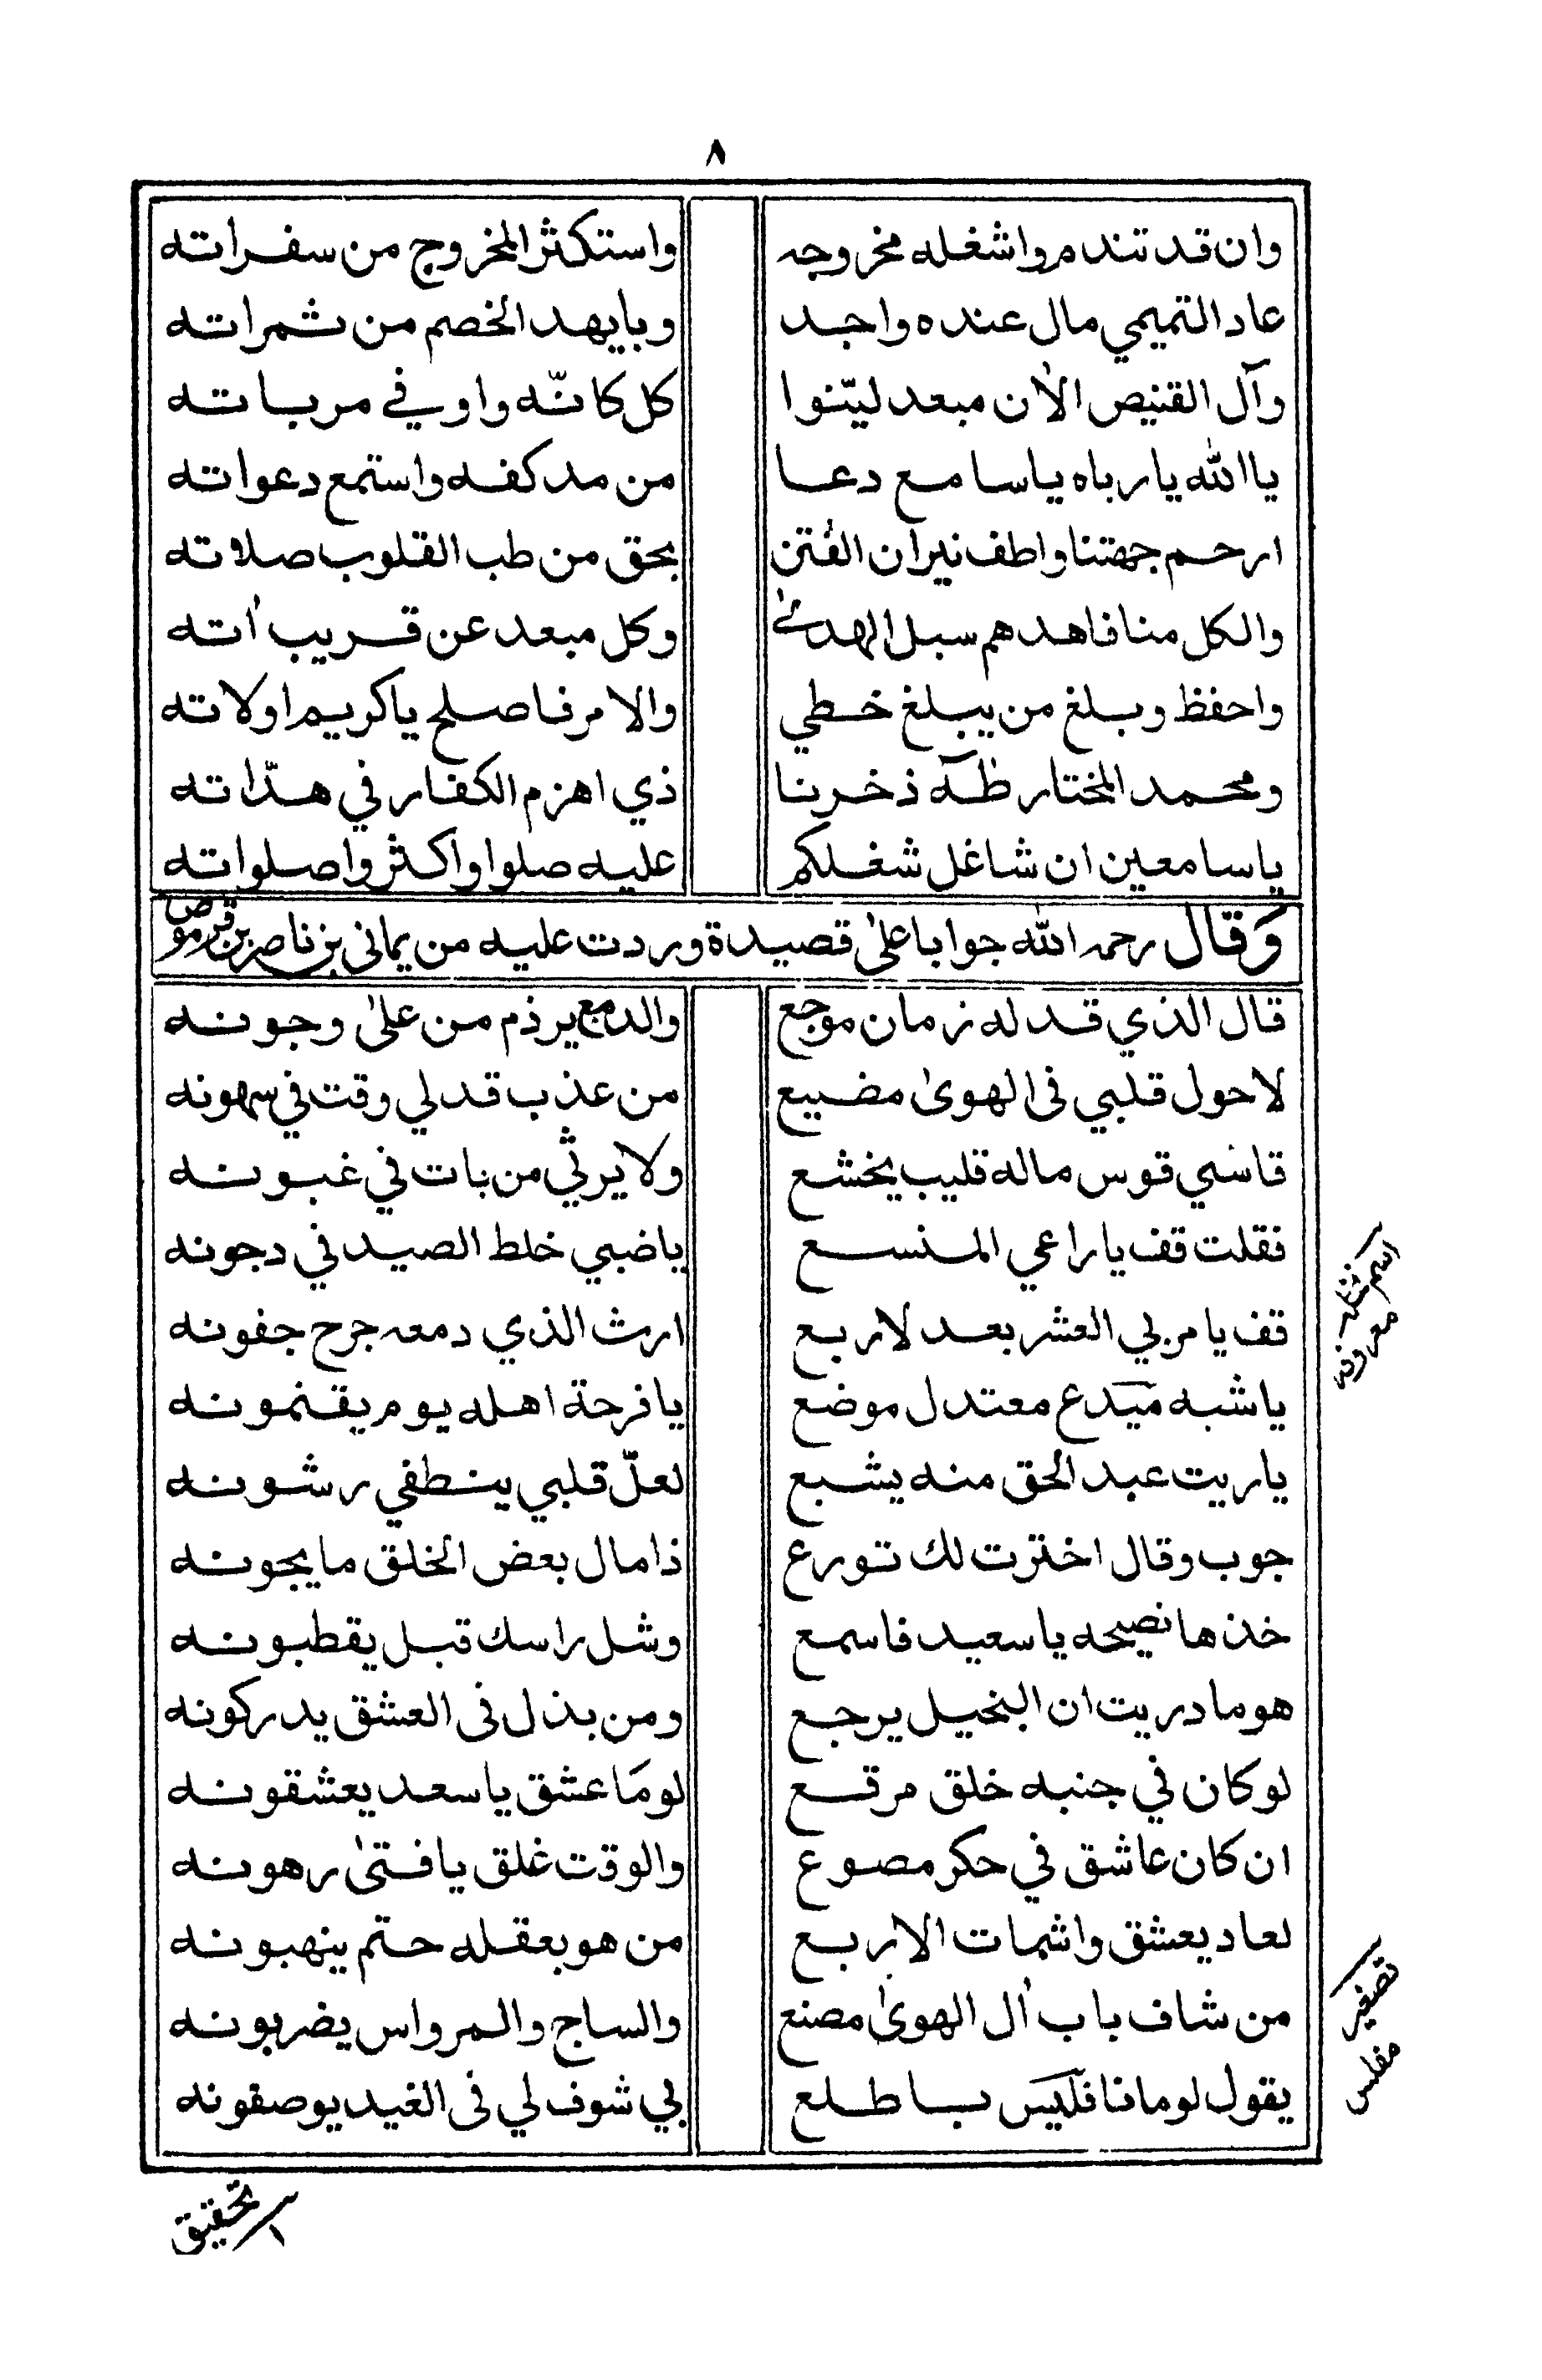 ٨
وان قد تندم واشغله مخروجه واستكثر المخروج من سفراته
عاد التميمي مال عنده واجد وبايهد الخصم من ثمراته
وآل القنيص الان مبعد ليّنوا كل كانّه واوي في مرباته
يا الله يارباه ياسامع دعا من مد كفه واستمع دعواته
ارحم جهتنا واطف نيران الفتن بحق من طب القلوب صلاته
والكل منا فاهدهم سبل الهدى وكل مبعد عن قريب اته
واحفظ وبلغ من يبلغ خطي والامر فاصلح ياكريم اولاته
ومحمد المختار طه ذخرنا ذي اهزم الكفار في هدّاته
ياسامعين ان شاغل شغلكم عليه صلوا واكثروا صلواته
وقال رحمه الله جوابا على قصيدة وردت عليه من يماني بن ناصر بن قرموص
قال الذي قد له زمان موجع والدمع يرذم من على وجونه
لاحول قلبي فى الهوى مضييع من عذب قد لي وقت في سهونه
قاسي قوس ماله قليب يخشع ولا يرثي من بات في غبونه
فقلت قف يا راعي المنسع ياضبي خلط الصيد في دجونه
قف يا مربي العشر بعد لاربع ارث الذي دمعه جرح جفونه
ياشبه ميدع معتدل موضع يافرحة اهله يوم يقنمونه
ياريت عبد الحق منه يشبع لعلّ قلبي ينطفي رشونه
جوب وقال اخترت لك تورع ذا مال بعض الخلق ما يجونه
خذها نصيحه ياسعيد فاسمع وشل راسك قبل يقطبونه
هو ما دريت ان البخيل يرجع ومن بذل فى العشق يدركونه
لو كان في جنبه خلق مرقع لوما عشق ياسعد يعشقونه
ان كان عاشق في حكر مصوع والوقت غلق يا فتى رهونه
لعاد يعشق واشمات الاربع من هو بعقله حتم ينهبونه
من شاف باب ال الهوى مصنع والساج والمرواس يضربونه
يقول لومانا فليس باطلع بي شوف لي فى الغيد يوصفونه
اسم نثله معروفه
تصغير مفلس
تحقيق